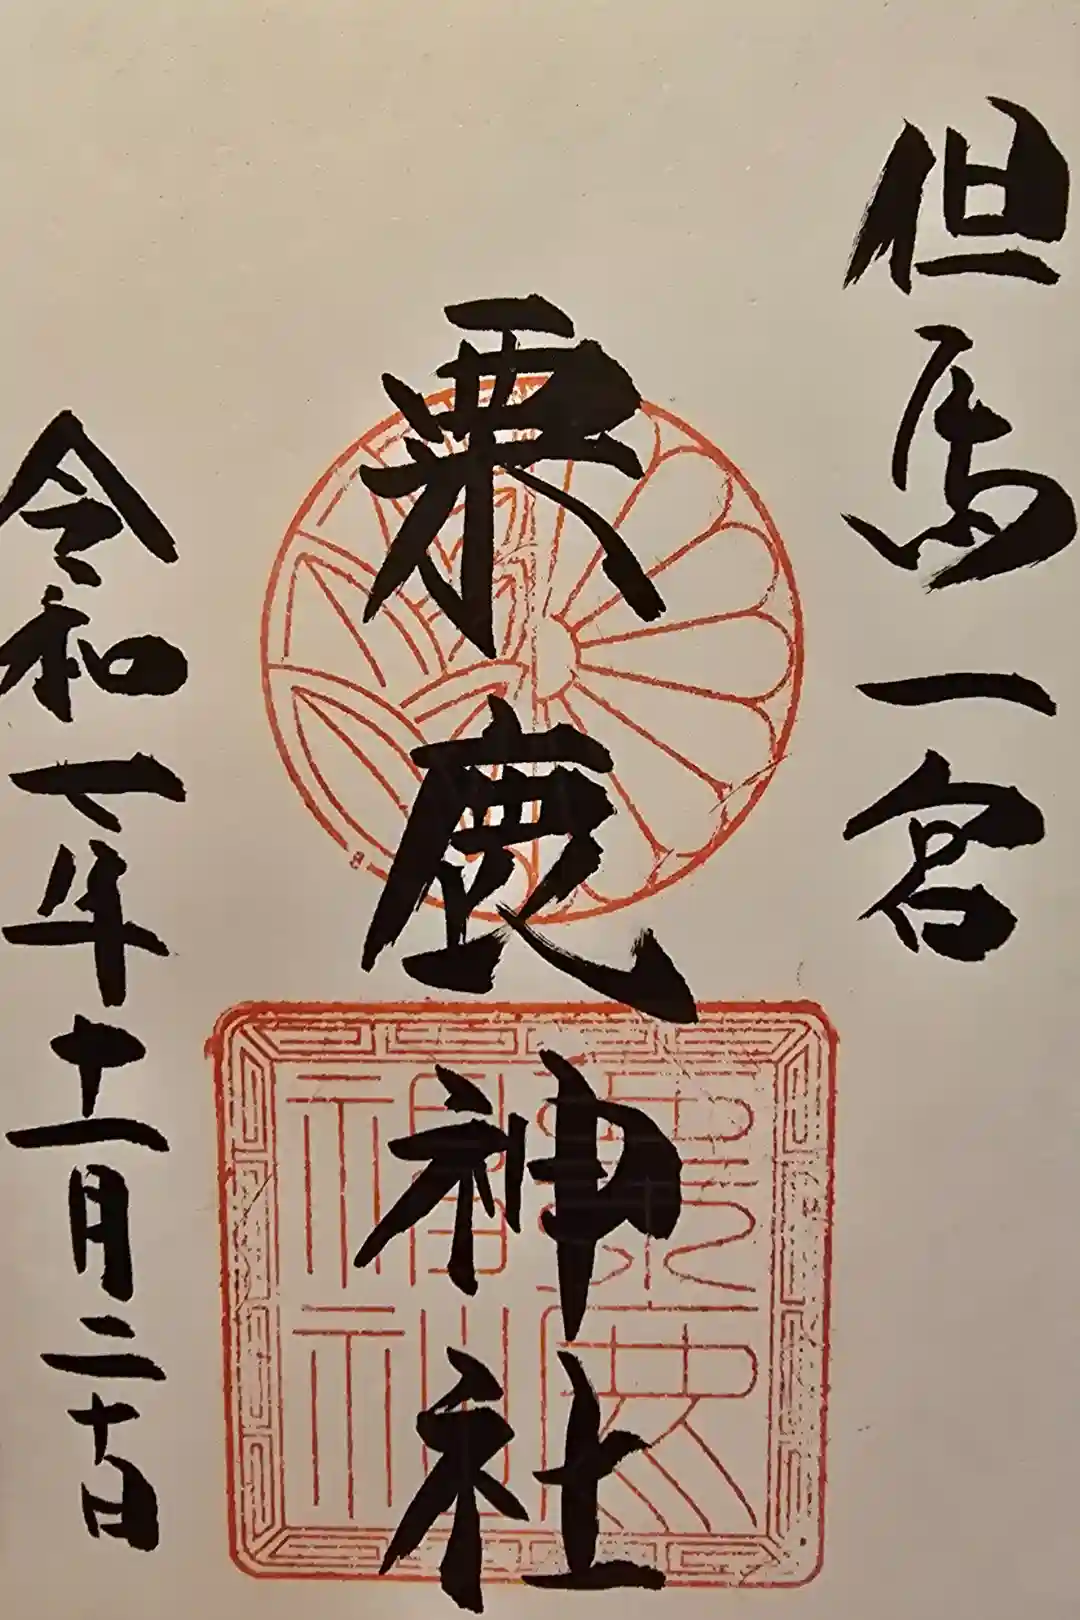 但馬一宮
粟鹿神社
令和七年十一月二十日